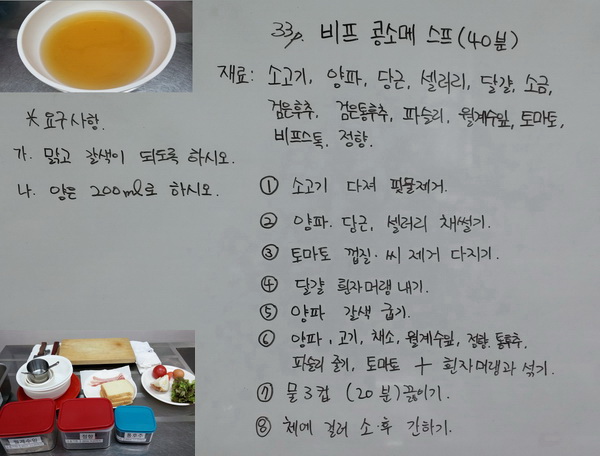 33p. 비프 콩소메 스프 (40분)
재료: 소고기, 양파, 당근, 셀러리, 달걀, 소금,
검은후추, 검은통후추, 파슬리, 월계수잎, 토마토,
비프스톡, 정향.
※ 요구사항.
가. 맑고 갈색이 되도록 하시오.
나. 양은 200ml로 하시오.
① 소고기 다져 핏물제거.
② 양파. 당근, 셀러리 채썰기.
③ 토마토 껍질. 씨 제거 다지기.
④ 달걀 흰자 머랭 내기.
⑤ 양파 갈색 굽기.
⑥ 양파, 고기, 채소, 월계수잎, 정향, 통후추,
파슬리 줄기, 토마토 + 흰자머랭과 섞기.
⑦ 물 3컵 (20분) 끓이기.
⑧ 체에 걸러 소.후 간하기.
월계수잎
정향
통후추